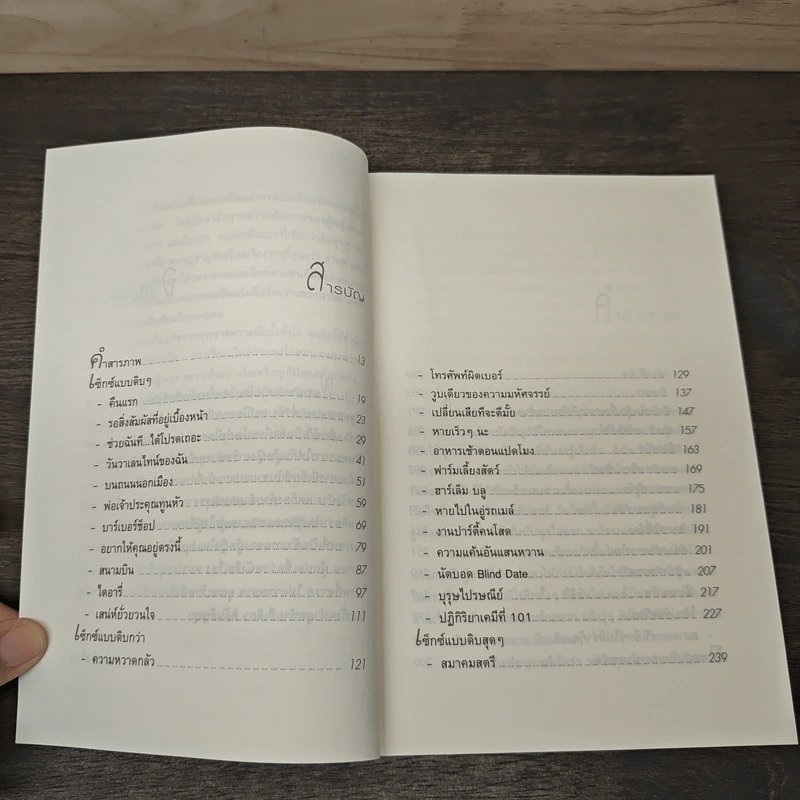 สารบัญ
คำสารภาพ 13
เซ็กซ์แบบดิบๆ
- คืนแรก 19
- รอสิ่งสัมผัสที่อยู่เบื้องหน้า 23
- ช่วยฉันที...ได้โปรดเถอะ 29
- วันวาเลนไทน์ของฉัน 41
- บนถนนนอกเมือง 51
- พ่อเจ้าประคุณทูนหัว 59
- บาร์เบอร์ช็อป 69
- อยากให้คุณอยู่ตรงนี้ 79
- สนามบิน 87
- ไดอารี่ 97
- เสน่ห์ยั่วยวนใจ 111
เซ็กซ์แบบดิบกว่า
- ความหวาดกลัว 121
- โทรศัพท์ผิดเบอร์ 129
- วูบเดียวของความมหัศจรรย์ 137
- เปลี่ยนเสียทีจะดีมั้ย 147
- หายเร็วๆ นะ 157
- อาหารเช้าตอนแปดโมง 163
- ฟาร์มเลี้ยงสัตว์ 169
- ฮาร์เล็ม บลู 175
- หายไปในอู่รถเมล์ 181
- งานปาร์ตี้คนโสด 191
- ความแค้นอันแสนหวาน 201
- นัดบอด Blind Date 207
- บุรุษไปรษณีย์ 217
- ปฏิกิริยาเคมีที่ 101 227
เซ็กซ์แบบดิบสุดๆ
- สมาคมสตรี 239